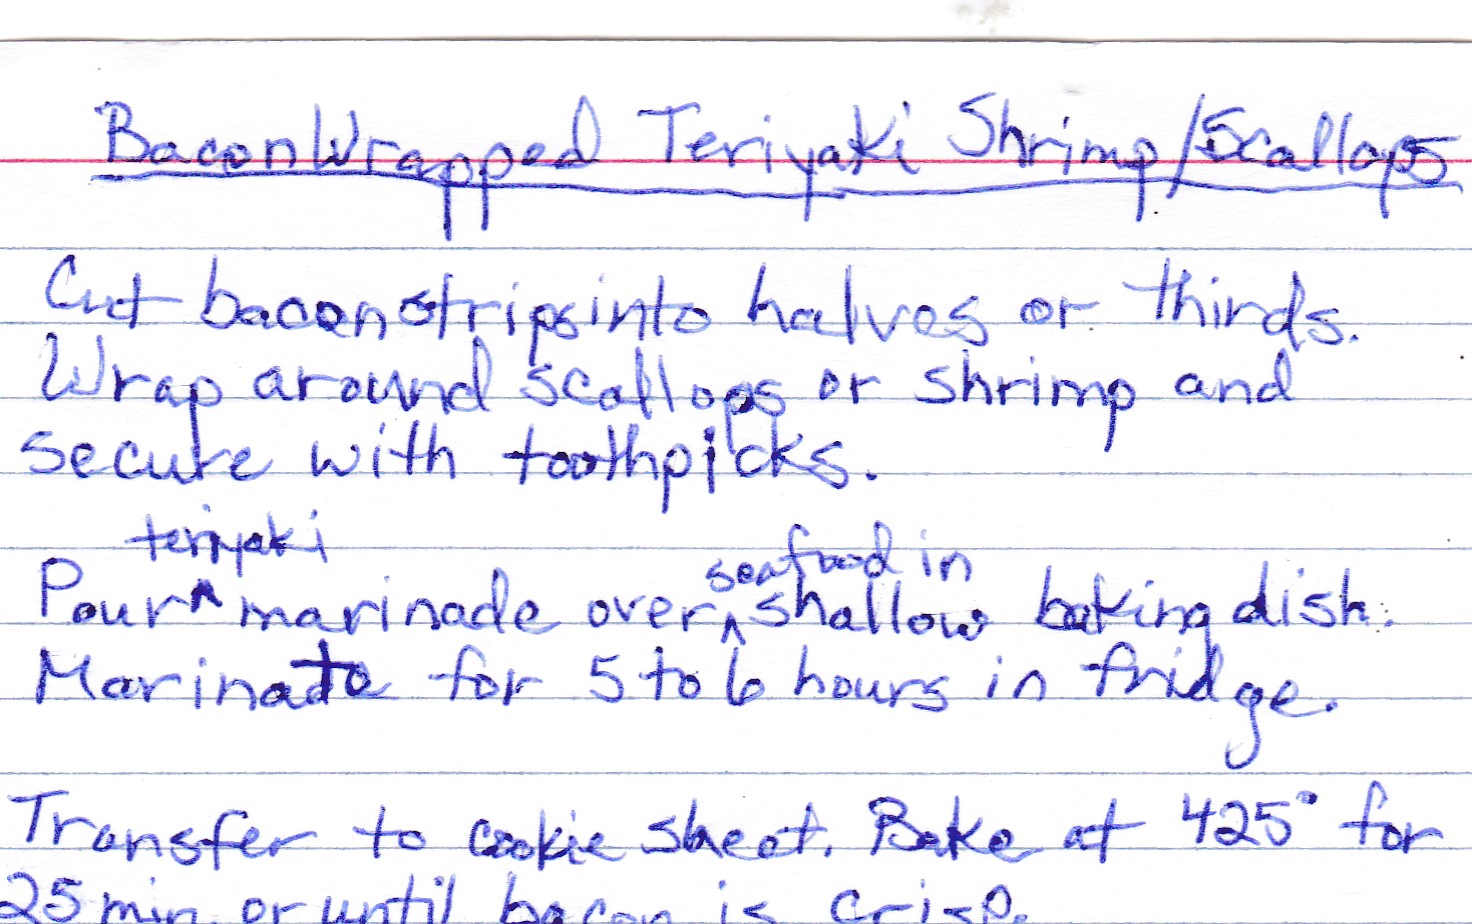 Bacon Wrapped Teriyaki Shrimp/Scallops
Cut bacon strips into halves or thirds.
Wrap around scallops or shrimp and
secure with toothpicks.
teriyaki seafood in
Pour ^ marinade over ^ shallow baking dish.
Marinate for 5 to 6 hours in fridge.
Transfer to cookie sheet. Bake at 425° for
25 min or until bacon is crisp.